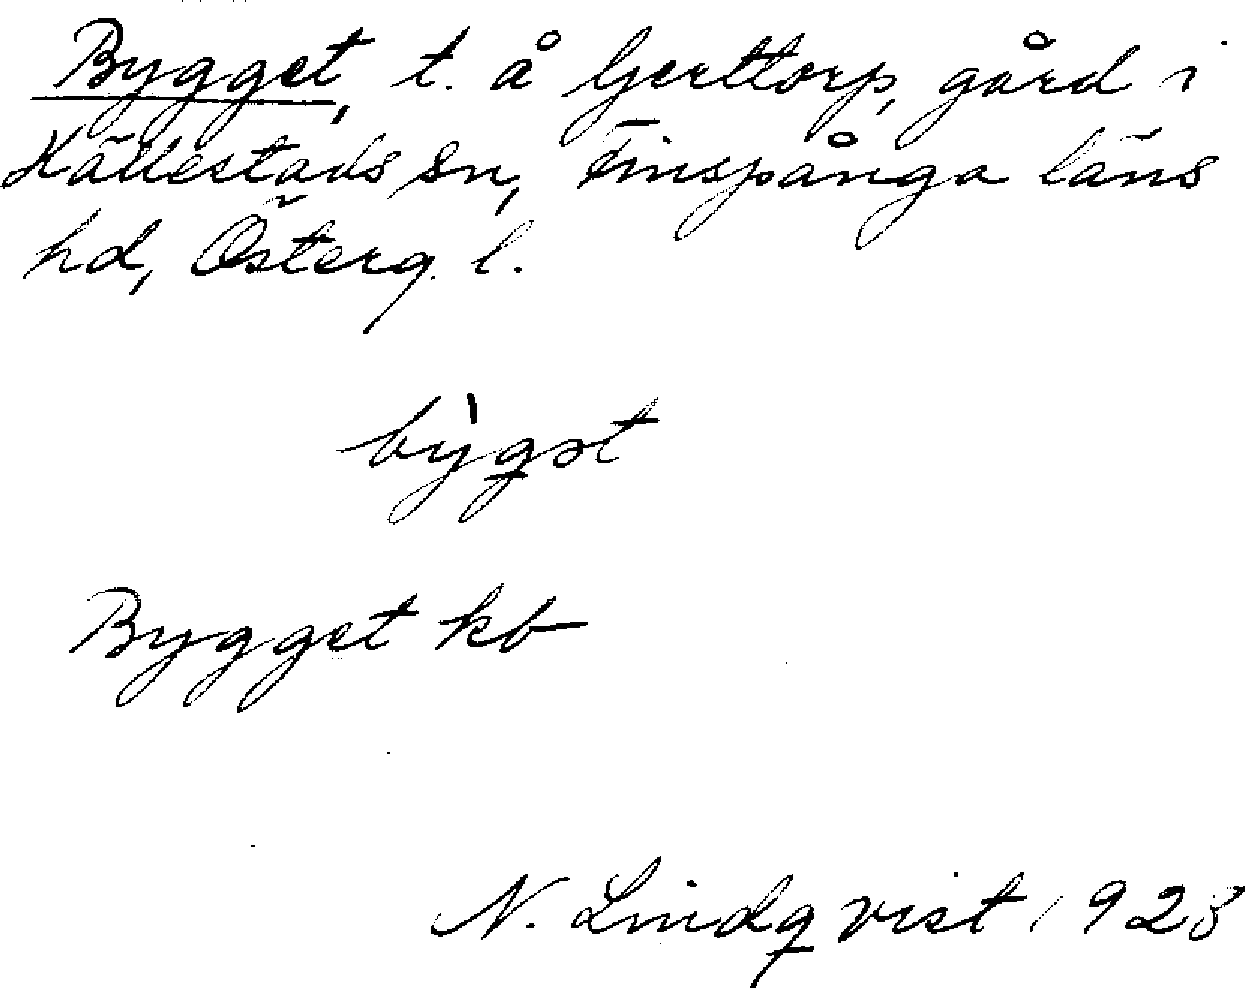 Bygget, t. å Gerttorp, gård i
Hällestads sn, Finspånga läns
hd, Österg. l.
bỳgət
Bygget kb
N. Lindqvist 1928